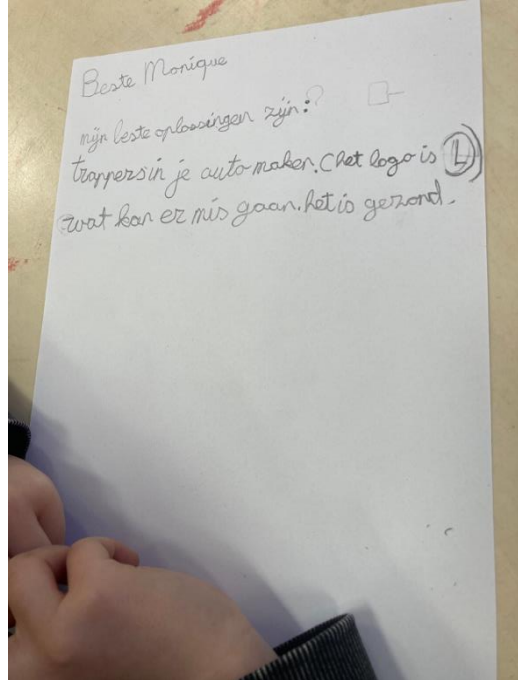 Beste Monique
mijn beste oplossingen zijn:
trappers in je auto maken. (het logo is L)
wat kan er mis gaan. het is gezond.